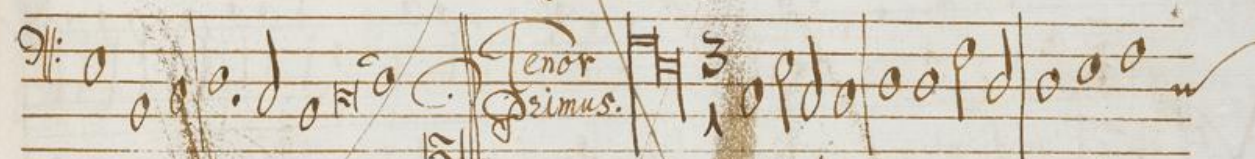 Tenor
Primus.
3
1